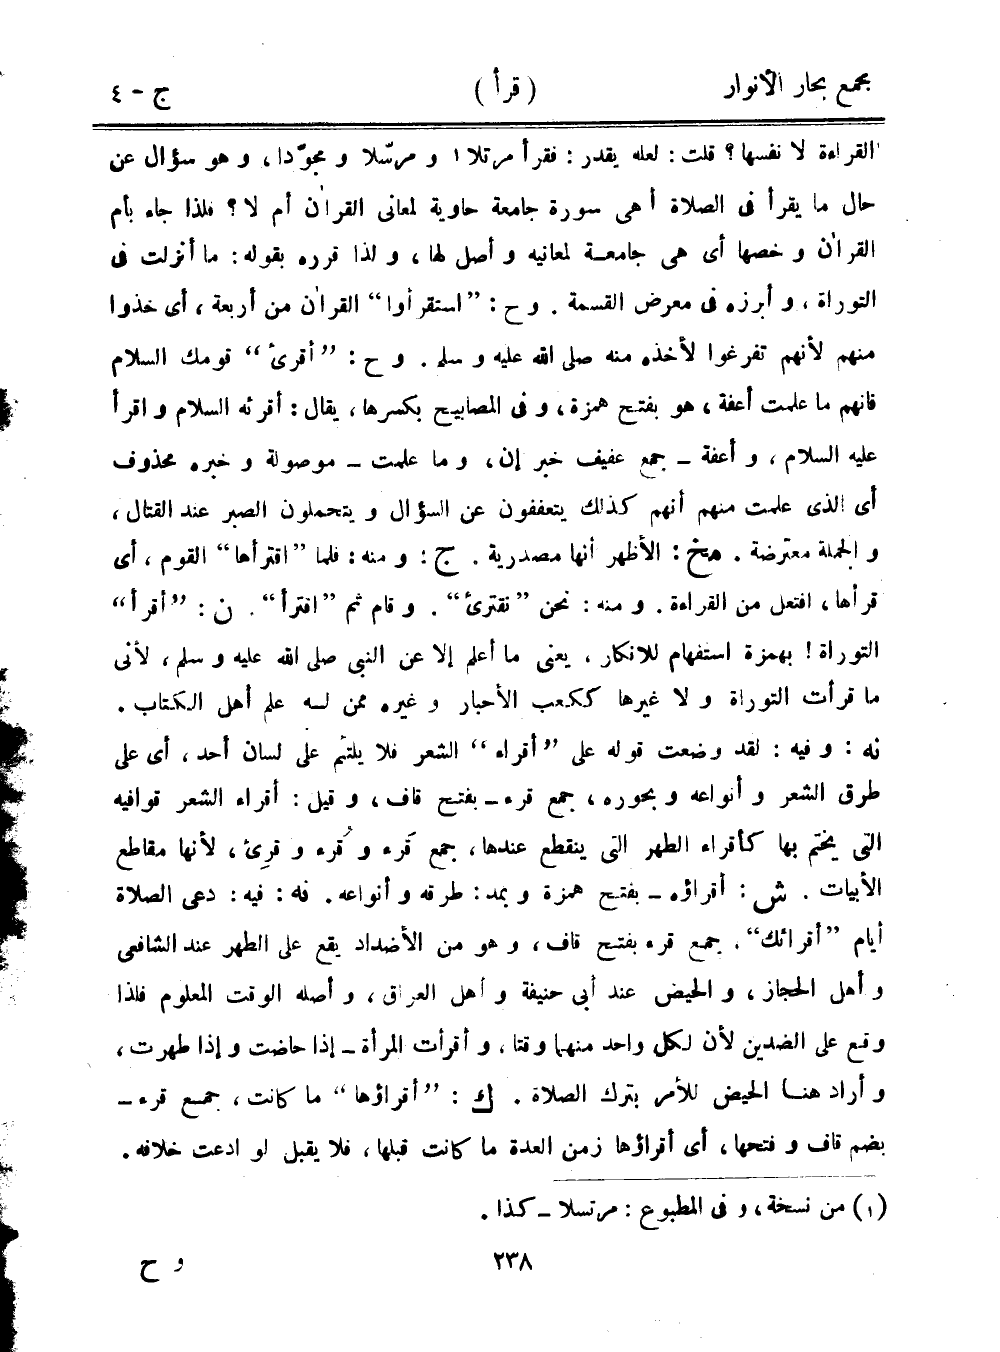 مجمع بحار الأنوار (قرأ) ج - ٤
القراءة لا نفسها؟ قلت: لعله يقدر: فقرأ مرتلا ١ و مرسّلا و مجوّدا، و هو سؤال عن
حال ما يقرأ فى الصلاة أ هى سورة جامعة حاوية لمعانى القراٰن أم لا؟ فلذا جاء بأم
القراٰن و خصها أى هى جامعة لمعانيه و أصل لها، و لذا قرره بقوله: ما أنزلت فى
التوراة، و أبرزه فى معرض القسمة. و ح: ”استقرأوا“ القراٰن من أربعة، أى خذوا
منهم لأنهم تفرغوا لأخذه منه صلى الله عليه و سلم. و ح: ”أقرئ“ قومك السلام
فانهم ما علمت أعفة، هو بفتح همزة، و فى المصابيح بكسرها، يقال: أقرئه السلام و اقرأ
عليه السلام، و أعفة ــ جمع عفيف خبر إن، و ما علمت ــ موصولة و خبره محذوف
أى الذى علمت منهم أنهم كذلك يتعففون عن السؤال و يتحملون الصبر عند القتال،
و الجملة معترضة. مخ: الأظهر أنها مصدرية. ج: و منه: فلما ”اقترأها“ القوم، أى
قرأها، افتعل من القراءة. و منه: نحن ”نقترئ“. و قام ثم ”اقترأ“. ن: ”أقرأ“
التوراة! بهمزة استفهام للانكار، يعنى ما أعلم إلا عن النبى صلى الله عليه و سلم، لأنى
ما قرأت التوراة و لا غيرها ككعب الأحبار و غيره ممن له علم أهل الكتاب.
نه: و فيه: لقد وضعت قوله على ”أقراء“ الشعر فلا يلتئم على لسان أحد، أى على
طرق الشعر و أنواعه و بحوره، جمع قرء ــ بفتح قاف، و قيل: أقراء الشعر قوافيه
التى يختم بها كأقراء الطهر التى ينقطع عندها، جمع قَرء و قُرء و قرِئ، لأنها مقاطع
الأبيات. ش: أقراؤه ــ بفتح همزة و بمد: طرقه و أنواعه. نه: فيه: دعى الصلاة
أيام ”أقرائك“. جمع قرء بفتح قاف، و هو من الأضداد يقع على الطهر عند الشافعى
و أهل الحجاز، و الحيض عند أبى حنيفة و أهل العراق، و أصله الوقت المعلوم فلذا
وقع على الضدين لأن لكل واحد منهما وقتا، و أقرأت المرأة ــ إذا حاضت و إذا طهرت،
و أراد هنا الحيض للأمر بترك الصلاة. ك: ”أقراؤها“ ما كانت، جمع قرء ــ
بضم قاف و فتحها، أى أقراؤها زمن العدة ما كانت قبلها، فلا يقبل لو ادعت خلافه.
(١) من نسخة، و فى المطبوع: مرتسلا ــ كذا.
٢٣٨ و ح